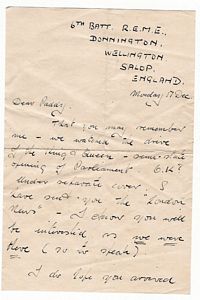 6TH BATT. R.E.M.E.,
DONNINGTON,
WELLINGTON
SALOP.
ENGLAND.
Monday 17 Dec.
Dear Paddy,
That you may remember
me - we watched the drive
of the King & Queen - same
opening of Parliament
Under separate cover I
have sent you the "London
News" - I know you will
be interested as we were
there (so to speak)
I do hope you arrived